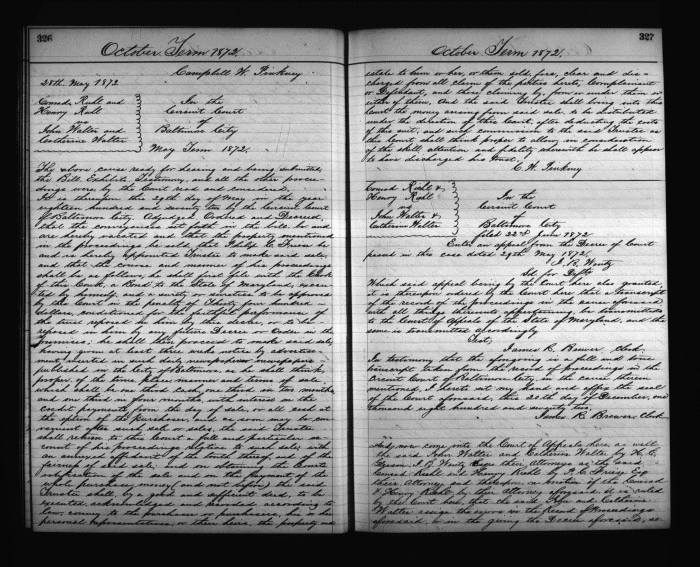 326
October Term 1872.
Campbell W. Pinkney
28th. May 1872
Conrad Ruhl and
Henry Ruhl
vs
John Walter and
Catherine Walter
In the
Circuit Court
of
Baltimore City
May Term 1872.
The above cause ready for hearing and being submitted,
the Bill, Exhibits, Testimony, and all the other procee-
dings were by the Court read and considered.
It is thereupon this 29th day of May in the year
eighteen hundred and seventy two by the Circuit Court
of Baltimore City, Adjudged, Ordered and Decreed,
that the conveyances set forth in the bill, be and
are hereby vacated and that the property mentioned
in the proceedings be sold, that
and is hereby appointed Trustee to make said sale,
and that the course and manner of his proceedings
shall be as follows; he shall first file with the Clerk
of this Court, a Bond to the State of Maryland, execu-
ted by himself, and a surety or sureties to be approved
by this Court in the penalty of Thirty four hundred
dollars, conditioned for the faithful performance of
the trust reposed in him by this decree, or to be
reposed in him by any future Decree or Order in the
premises; he shall then proceed to make said sale,
having given at least three weeks notice by advertise-
ment inserted in such daily newspaper or newspapers
published in the City of Baltimore, as he shall think
proper of the time, place, manner and terms of sale
which shall be one third cash, one third in two months,
and one third in four months, with interest on the
credit payments from the day of sale, or all cash at
the option of the purchaser, and as soon as may be con-
venient after such sale or sales, the said Trustee
shall return to this Court a full and particular ac-
count of his proceedings relative to such sale, with
an annexed affidavit of the truth thereof and of the
fairness of said sale, and on obtaining the Courts
ratification of the sale and on the payment of the
whole purchase money, (and not before,) the said
Trustee shall, by a good and sufficient deed, to be
executed, acknowledged and recorded according to
law, convey to the purchaser or purchasers, his or her
personal representatives, or their heirs, the property and
327
October Term 1872.
estate to him or her, or them sold, free, clear and dis-
charged from all claim of the parties hereto, Complainant
or Defendant, and those claiming by, from or under them or
either of them. And the said Trustee shall bring into this
Court the money arising from said sale, to be distributed
under the direction of this Court, after deducting the costs
of this suit, and such commission to the said Trustee as
this Court shall think proper to allow, in consideration
of the skill, attention and fidelity wherewith he shall appear
to have discharged his trust.
C. W. Pinkney
Conrad Ruhl &
Henry Ruhl
vs
John Walter &
Catherine Walter
In the
Circuit Court
of
Baltimore City
filed 22nd June 1872
Enter an appeal from the Decree of Court
passed in this case dated 29th May 1872.
J. R. Wentz
Sol. for Defts
Which said appeal being by the Court here also granted,
it is thereupon ordered by the Court here that a transcript
of the record of the proceedings in the cause aforesaid,
with all things thereunto appertaining, be transmitted
to the Court of Appeals of the State of Maryland, and the
same is transmitted accordingly.
Test,
James R. Brewer Clerk.
In testimony that the foregoing is a full and true
transcript taken from the record of proceedings in the
Circuit Court of Baltimore City, in the cause therein
mentioned, I hereto set my hand and affix the seal
of the Court aforesaid, this 20th day of December, one
thousand eight hundred and seventy two.
James R. Brewer Clerk
And now come into the Court of Appeals here, as well
the said John Walter and Catherine Walter by
J. R. Wentz Esqs their Attorneys as the said
Conrad Ruhl and Henry Ruhl, by
their Attorney, and thereupon on motion of the Conrad
& Henry Ruhl, by their Attorney aforesaid it is ruled
by the Court here that the said John and Catherine
Walter assign the errors in the Record & Proceedings
aforesaid, & in the giving the Decree aforesaid, so